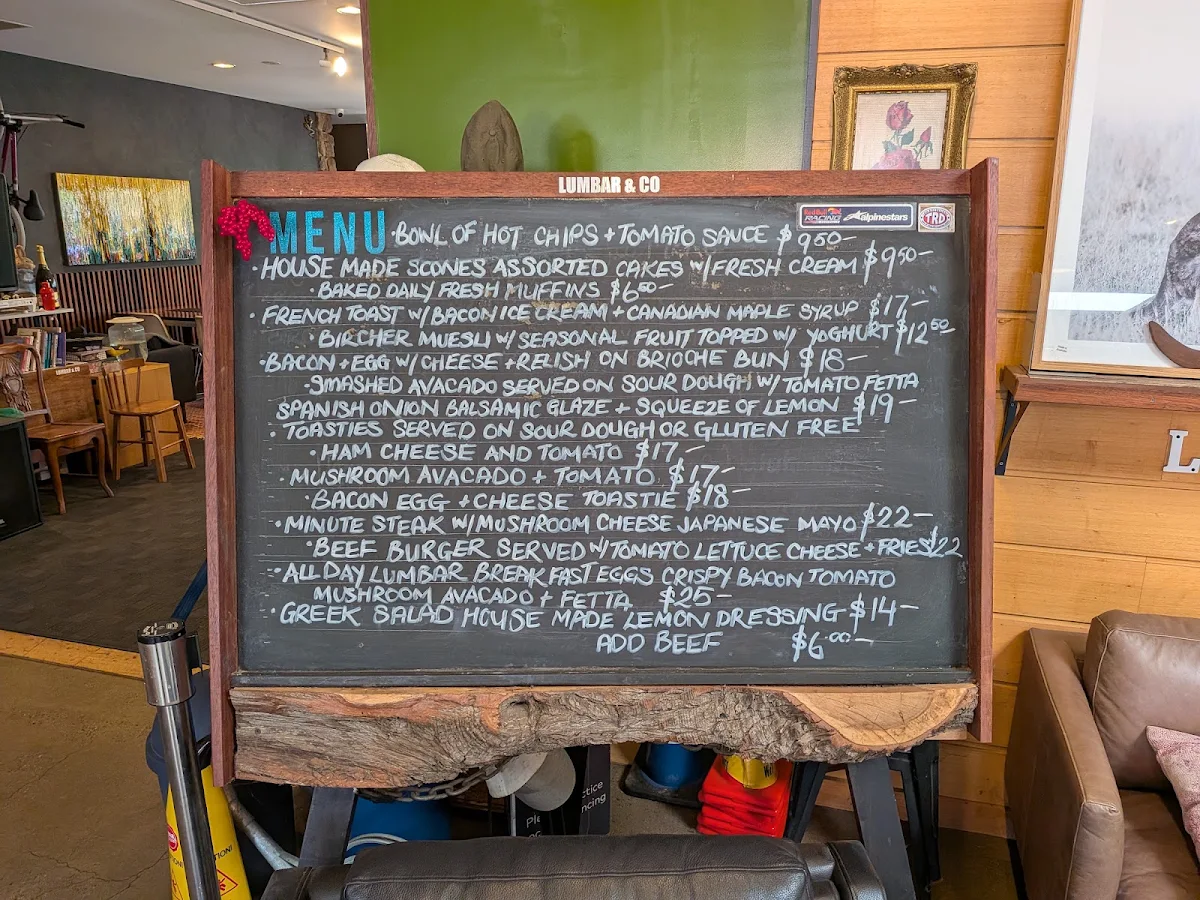 LUMBAR & CO
MENU · BOWL OF HOT CHIPS + TOMATO SAUCE $9.50-
Red Bull RACING alpinestars TRD
· HOUSE MADE SCONES ASSORTED CAKES W/ FRESH CREAM $9.50-
· BAKED DAILY FRESH MUFFINS $6.50-
· FRENCH TOAST W/ BACON ICE CREAM + CANADIAN MAPLE SYRUP $17-
· BIRCHER MUESLI W/ SEASONAL FRUIT TOPPED W/ YOGHURT $12.50-
· BACON + EGG W/ CHEESE + RELISH ON BRIOCHE BUN $18-
· SMASHED AVACADO SERVED ON SOUR DOUGH W/ TOMATO FETTA
SPANISH ONION BALSAMIC GLAZE + SQUEEZE OF LEMON $19-
· TOASTIES SERVED ON SOUR DOUGH OR GLUTEN FREE
· HAM CHEESE AND TOMATO $17-
· MUSHROOM AVACADO + TOMATO $17-
· BACON EGG + CHEESE TOASTIE $18-
· MINUTE STEAK W/ MUSHROOM CHEESE JAPANESE MAYO $22-
· BEEF BURGER SERVED W/ TOMATO LETTUCE CHEESE + FRIES $22
· ALL DAY LUMBAR BREAKFAST EGGS CRISPY BACON TOMATO
MUSHROOM AVACADO + FETTA $25-
· GREEK SALAD HOUSE MADE LEMON DRESSING - $14-
ADD BEEF $6.00-
LUMBAR & CO
L